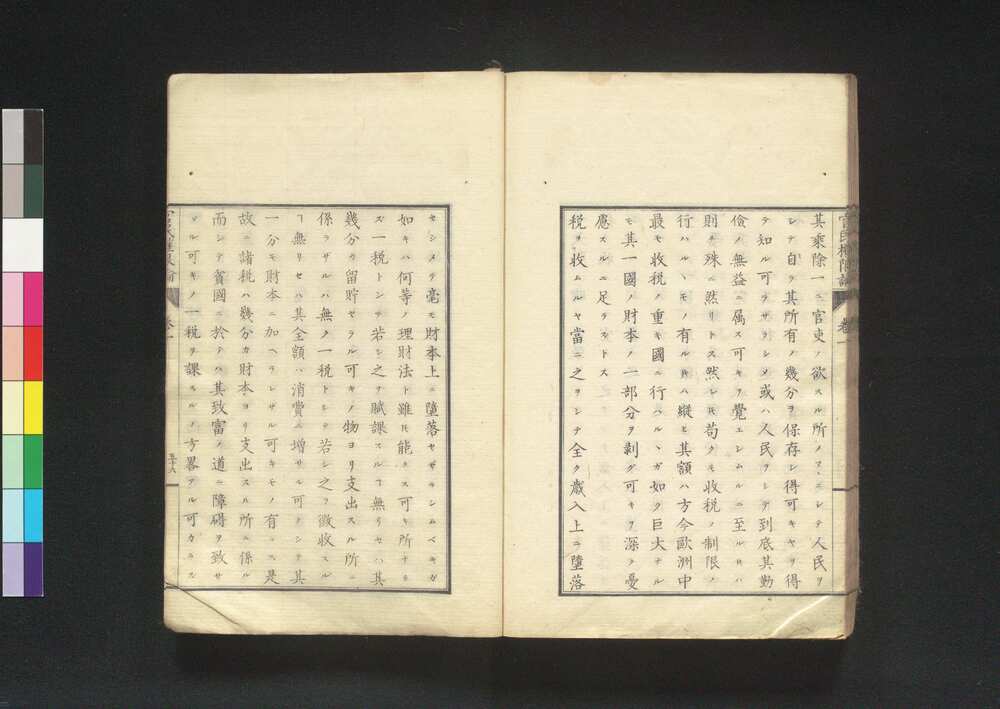 官民権限論 巻一
其乘除一ニ官吏ノ欲スル所ノマヽニシテ人民ヲ
シテ自ラ其所有ノ幾分ヲ保存シ得可キヤヲ得
テ知ル可ラサラシメ或ハ人民ヲシテ到底其勤
儉ノ無益ニ属ス可キヲ覺エシムルニ至ルㇵ
則チ殊ニ然リトス然レ𪜈苟クモ收税ノ制限ノ
行ハルヽモノ有ル𪜈ハ縱ヒ其額ハ方今歐洲中
最モ收税ノ重キ國ニ行ハルヽガ如ク巨大ナル
モ其一國ノ財本ノ一部分ヲ剥グ可キヲ深ク憂
慮スルニ足ラズトス
税ヲ收ムルヤ當ニ之ヲシテ全ク歳入上ニ墮落
セシメテ毫モ財本上ニ墮落セザラシムベキガ
如キハ何等ノ理財法ト雖𪜈能クス可キ所ナラ
ズ一税トシテ若シ之ヲ賦課スルヿ無リセハ其
幾分カ留貯セラル可キノ物ヨリ支出スル所ニ
係ラサルハ無ク一税トシテ若シ之ヲ徴收スル
ヿ無リセハ其全額ハ消費ニ増サル可クシテ其
一分モ財本ニ加ヘラレサル可キモノ有ラス是
故ニ諸税ハ幾分カ財本ヨリ支出スル所ニ係ル
而シテ貧國ニ於テハ其致富ノ道ニ障碍ヲ致サ
ヾル可キノ一税ヲ課スルノ方畧アル可カラス
巻一
五十八